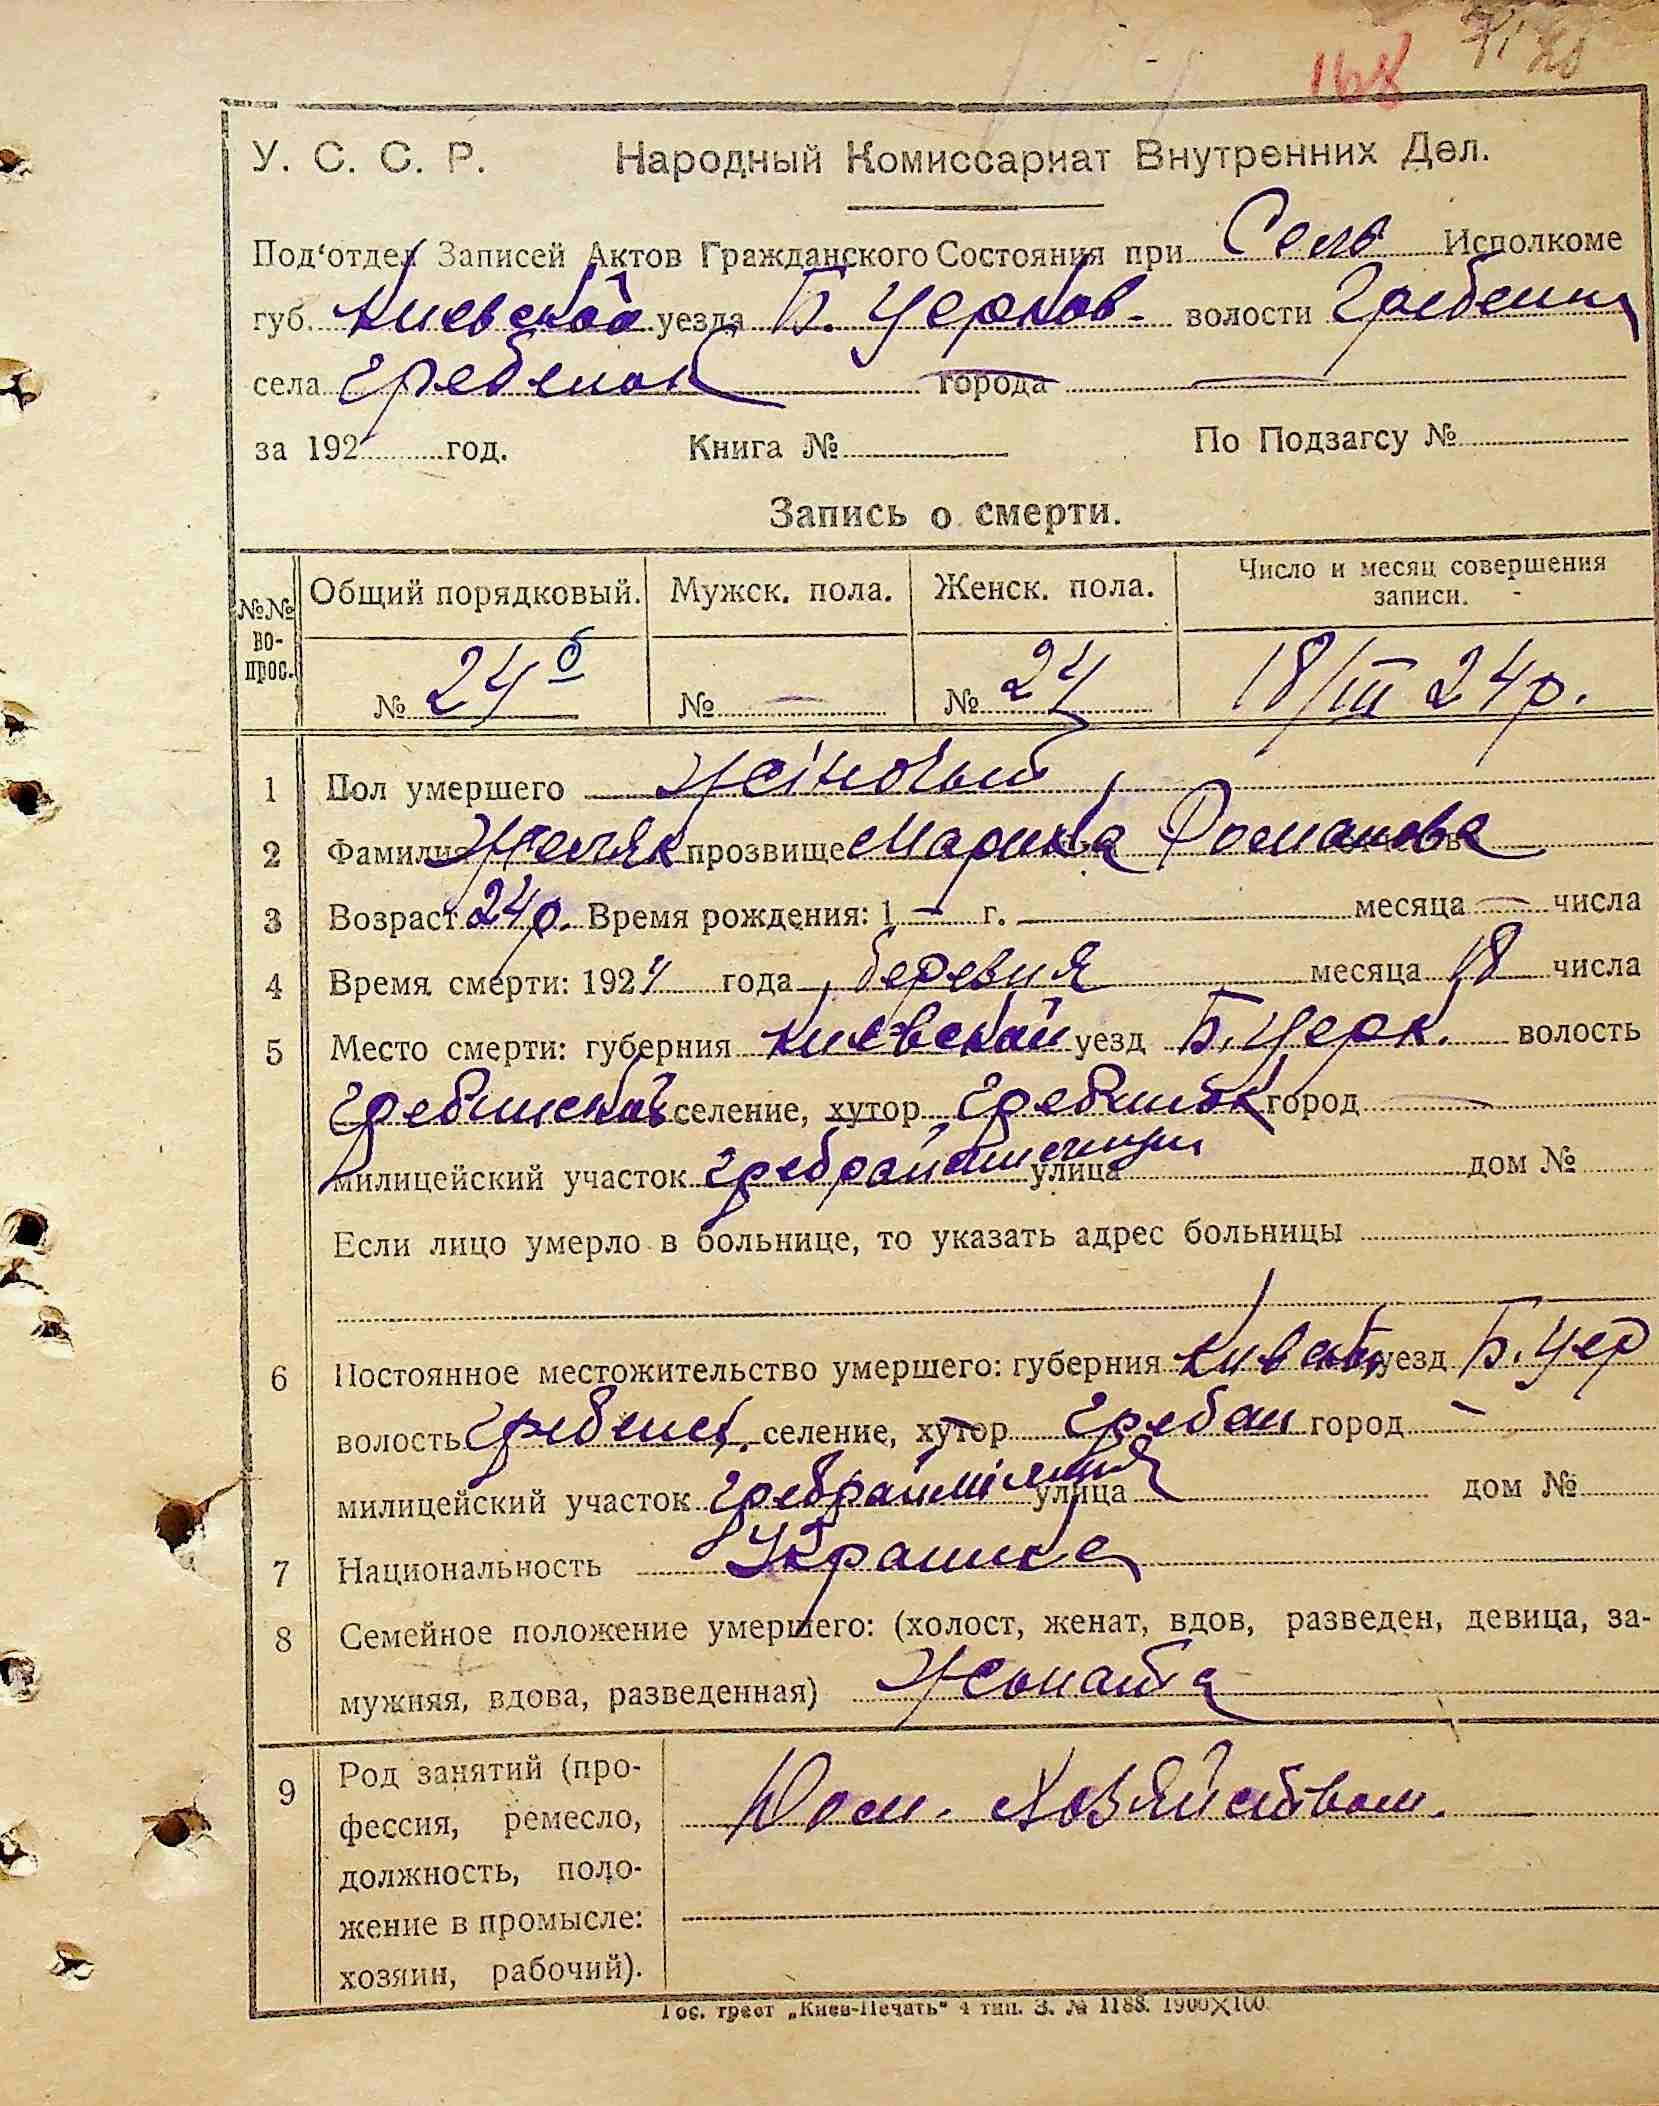 168
У. С. С. Р. Народный Комиссариат Внутренних Дел.
Под‘отдел Записей Актов Гражданского Состояния при Сель Исполкоме
губ. Киевской уезда Б. Церков- волости Гребенки
села Гребенок города —
за 192 год. Книга № По Подзагсу №
Запись о смерти.
№№ во- прос. Общий порядковый. Мужск. пола. Женск. пола. Число и месяц совершения записи.
№ 24б № — № 24 18/III 24р.
1 Пол умершего жіночый
2 Фамилия прозвище Марина Романова
3 Возраст 24р. Время рождения: 1 — г. месяца — числа
4 Время смерти: 1924 года березня месяца 18 числа
5 Место смерти: губерния Киевской уезд Б. Церк. волость
Гребинской селение, хутор город —
милицейский участок улица дом №
Если лицо умерло в больнице, то указать адрес больницы
6 Постоянное местожительство умершего: губерния уезд Б. Цер
волость селение, хутор Гребен город —
милицейский участок улица дом №
7 Национальность Украинка
8 Семейное положение умершего: (холост, женат, вдов, разведен, девица, за-
мужняя, вдова, разведенная) Жоната
9 Род занятий (про-
фессия, ремесло, Дом. хозяйством.
должность, поло-
жение в промысле:
хозяин, рабочий).
Гос. трест „Киев-Печать“ 4 тип. З. № 1188. 1900×100.